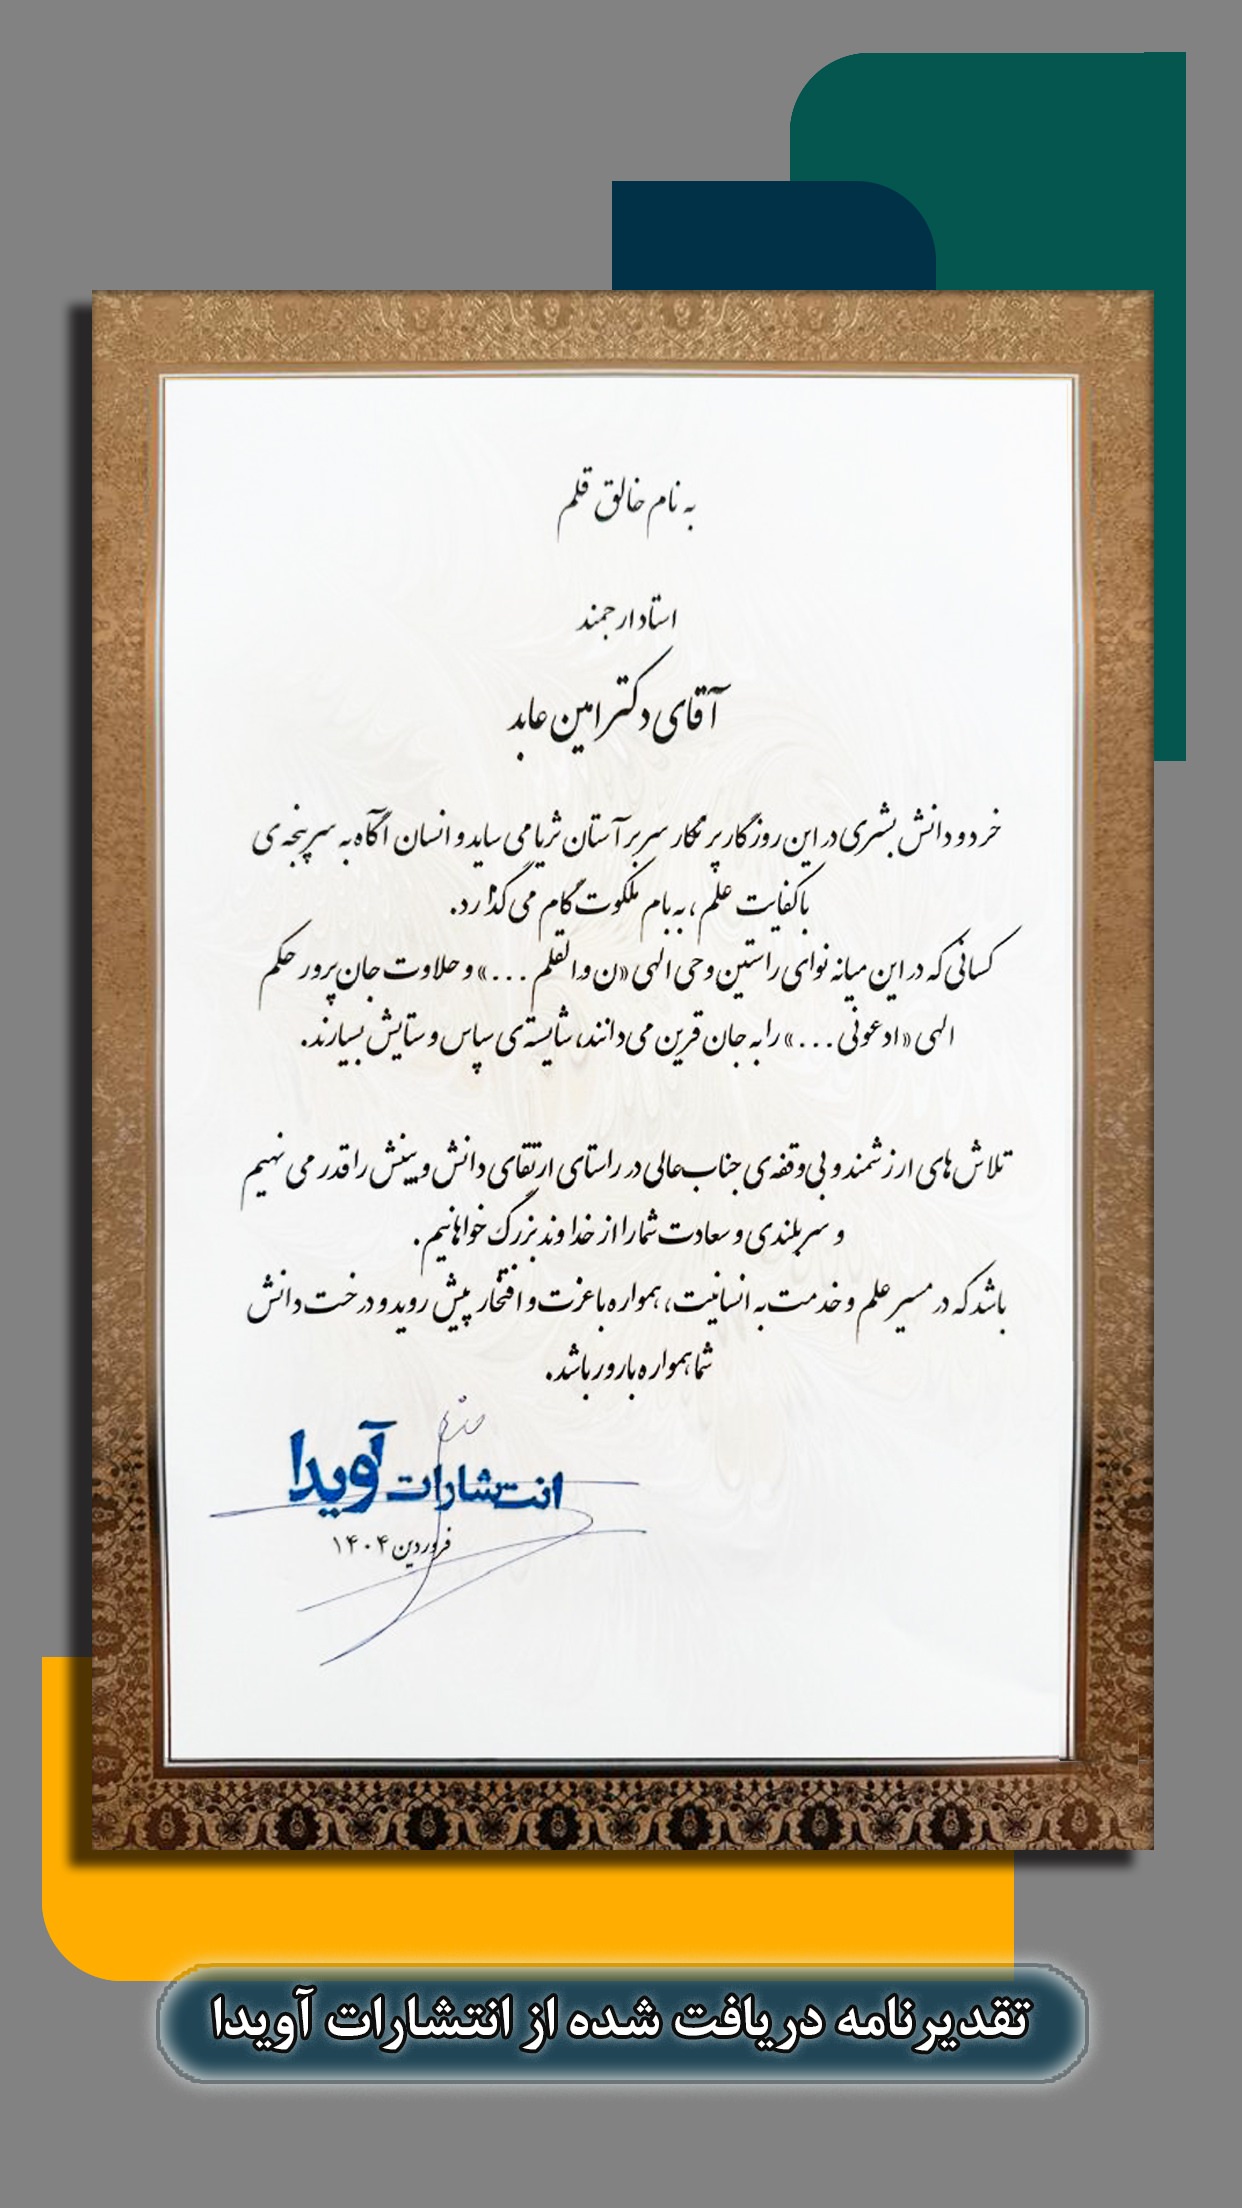 به نام خالق قلم
استاد ارجمند
آقای دکتر امین عابد
خرد و دانش بشری در این روزگار پر نگار سر بر آستان ثریا می ساید و انسان آگاه به سرپنجه ی
با کفایت علم، به بام ملکوت گام می گذارد.
کسانی که در این میانه نوای راستین وحی الهی «ن و القلم ...» و حلاوت جان پرور حکم
الهی «ادعونی ...» را به جان قرین می دانند، شایسته ی سپاس و ستایش بسیارند.
تلاش های ارزشمند و بی وقفه ی جناب عالی در راستای ارتقای دانش و بینش را قدر می نهیم
و سربلندی و سعادت شما را از خداوند بزرگ خواهانیم.
باشد که در مسیر علم و خدمت به انسانیت، همواره با عزت و افتخار پیش روید و درخت دانش
شما همواره بارور باشد.
انتشارات آویدا
فروردین ۱۴۰۴
تقدیرنامه دریافت شده از انتشارات آویدا